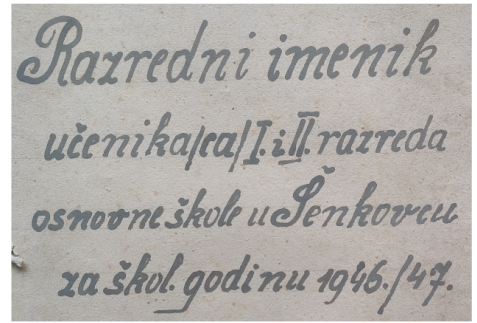 Razredni imenik
učenika/ca/ I. i II. razreda
osnovne škole u Šenkovcu
za škol. godinu 1946./47.